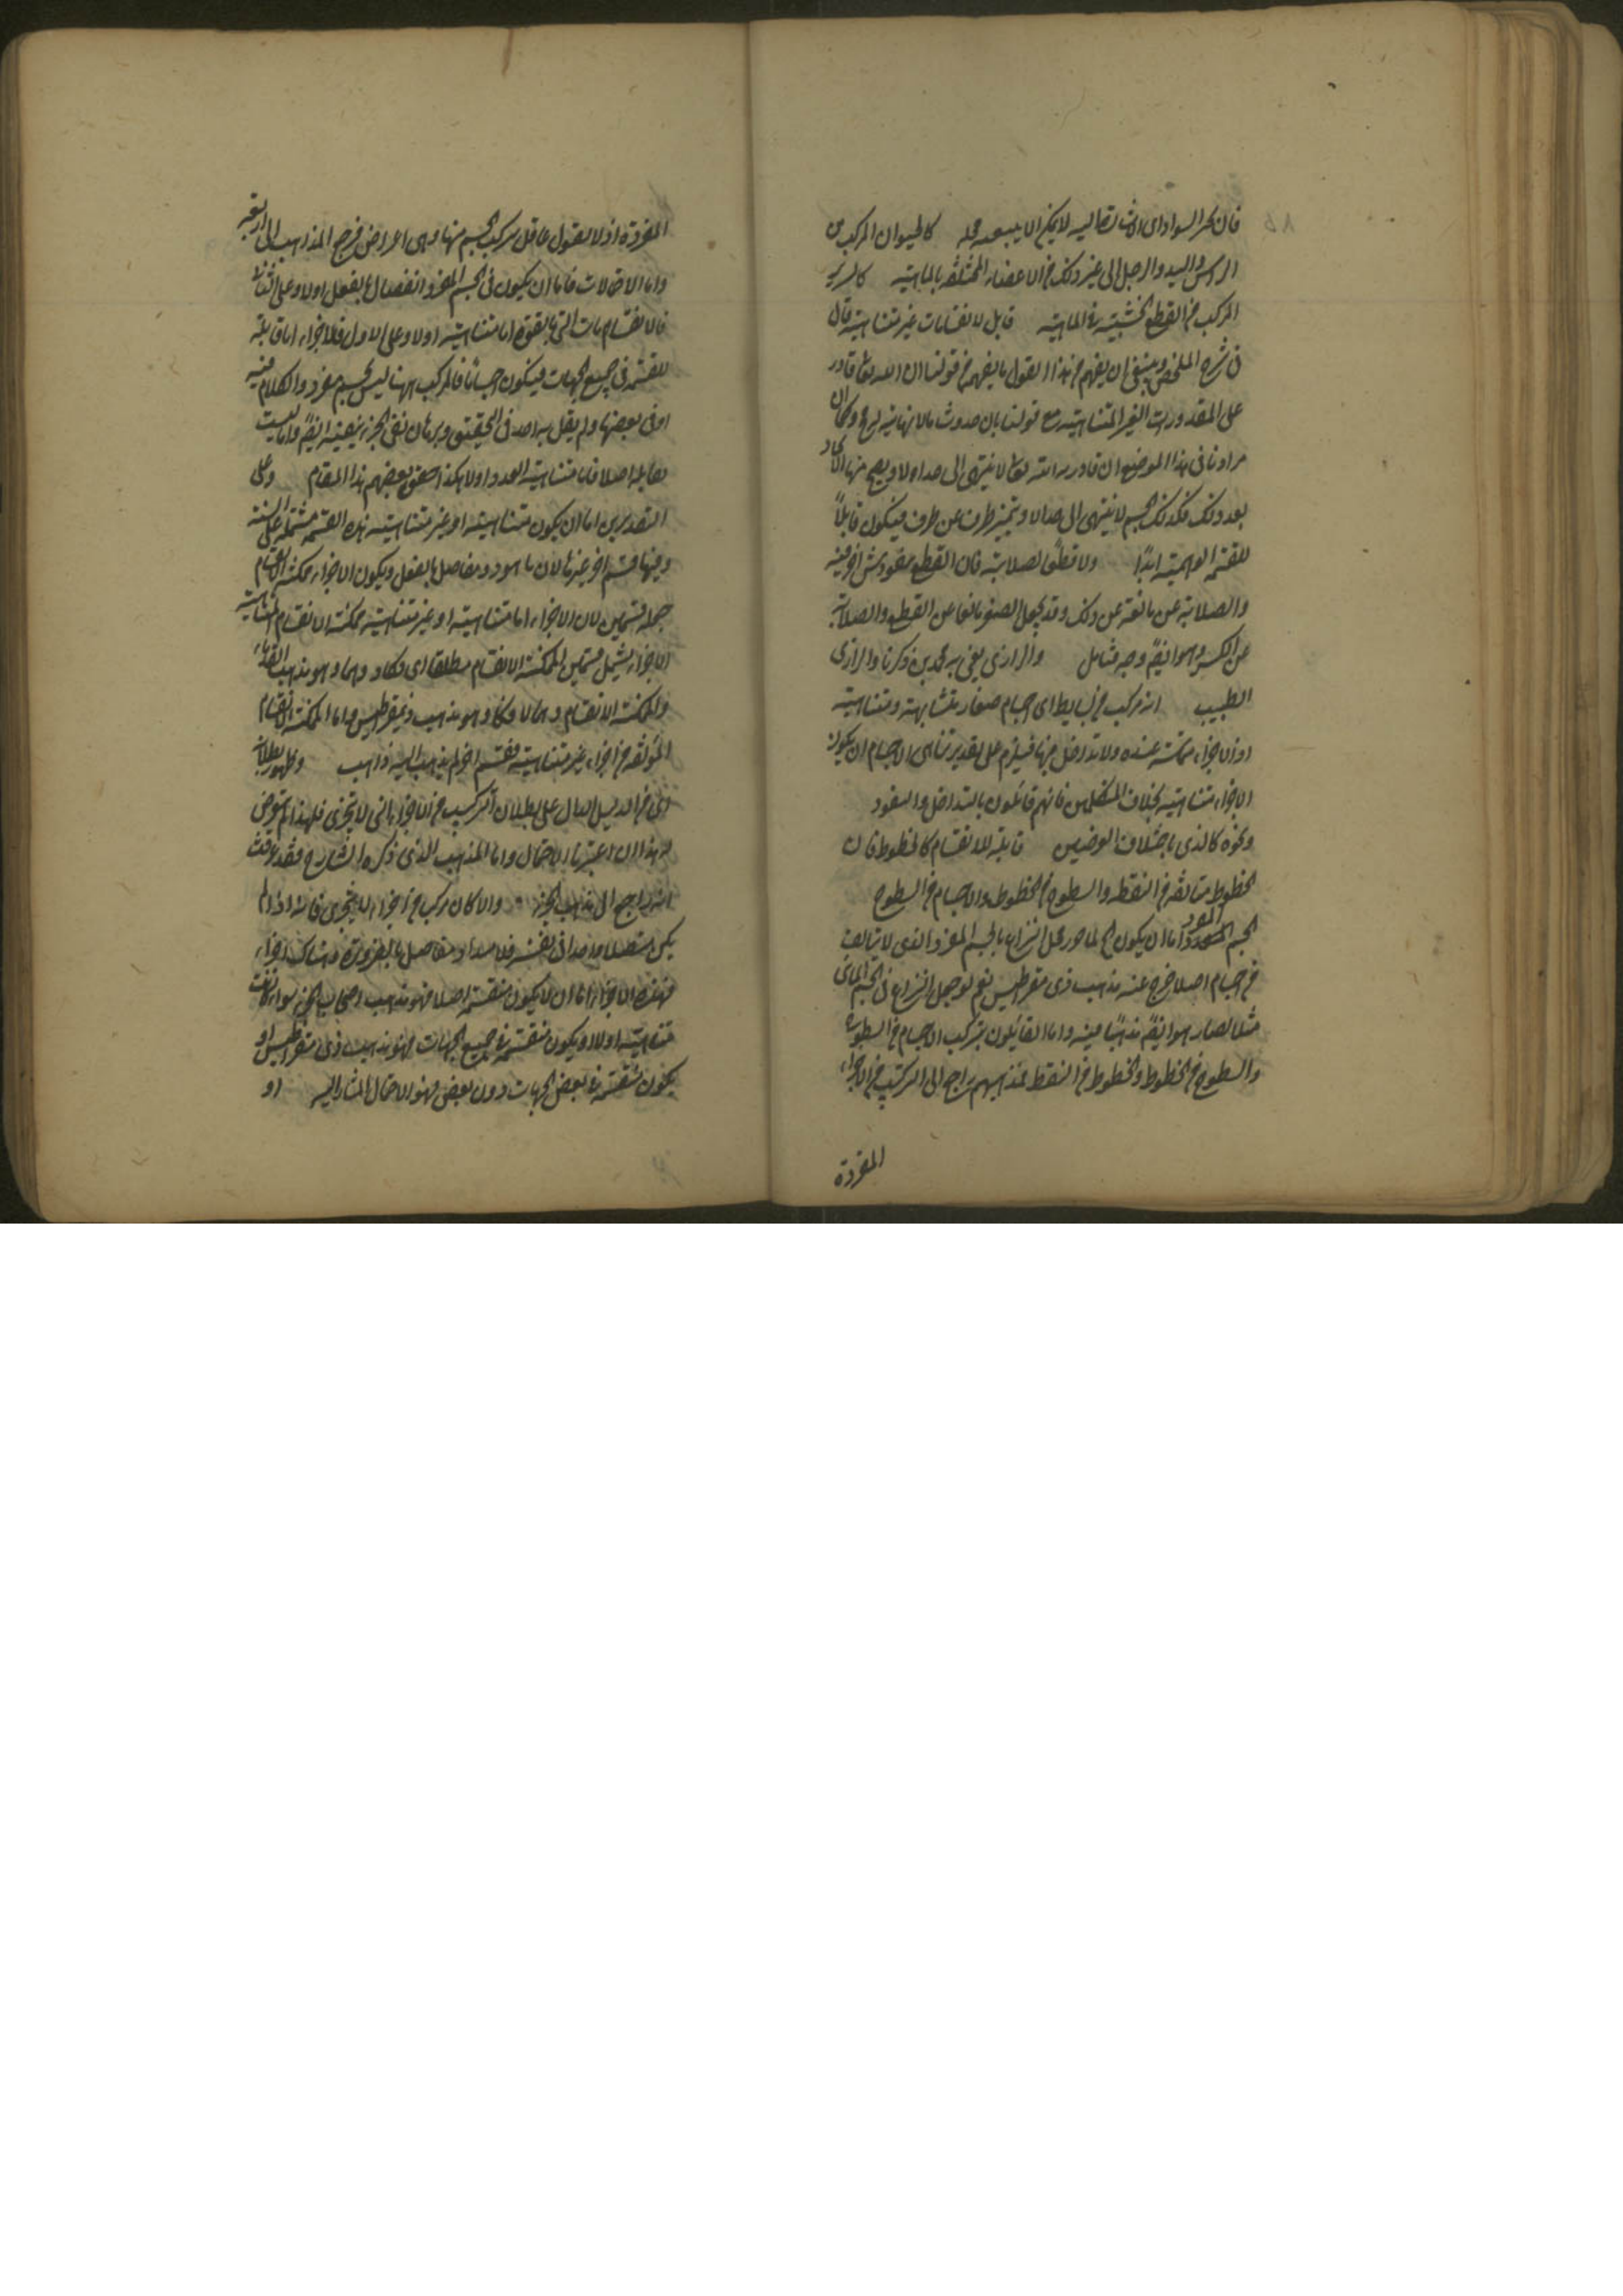 فان كل السواد اى الاشارة اليه لا يمكن الا بتبعية محله كالحيوان المركب من
الراس واليد والرجل الى غير ذلك من الاعضاء المختلفة بالماهية كالسرير
المركب من القطع الخشبية فى الماهية قابل لانقسامات غير متناهية قال
فى شرح الملخص وينبغى ان يفهم من هذا القول ما يفهم من قولنا ان الله تعالى قادر
على المقدورات الغير المتناهية مع قولنا بان حدوث ما لا نهاية له مح وكما ان
مرادنا فى هذا الموضع ان قادرية الله تعالى لا ينتهى الى حد اولا ويصح منه الايجاد
بعد ذلك فكذلك الجسم لا ينتهى الى حد الا ويتميز طرف عن طرف فيكون قابلاً
للقسمة الوهمية ابدًا ولا قطعًا لصلابته فان القطع بنفوذ شىء اخر فيه
والصلابة عن مانعة عن ذلك وقد يجعل الصغر مانعا عن القطع والصلابة
عن الكسر وهو ايضًا وجه فتأمل والرازى يعنى به محمد بن زكريا الرازى
الطبيب انه مركب من بسايط اى اجسام صغار متشابهة ومتناهية
اذ الاجزاء متماسة عنده ولا تداخل فيها فيلزم على تقدير تناهى الاجسام ان يكون
الاجزاء متناهية بخلاف المتكلمين فانهم قائلون بالتداخل والنفوذ
ونحوه كالذى باختلاف العرضين قابلة للانقسام كالخطوط فان
الخطوط متالفة من النقطة والسطوح من الخطوط والاجسام من السطوح
الجسم المفرد اما ان يكون لما حرر محل النزاع بالجسم المفرد الذى لا يتالف
من اجسام اصلا خرج عنه مذهب ذى مقراطيس نعم لو جعل النزاع فى الجسم المائى
مثلا لصار هو ايضًا مذهبًا فيه واما القائلون بتركب الاجسام من السطوح
والسطوح من الخطوط والخطوط من النقط فمذهبهم راجع الى التركيب من الاجزاء
المفردة
المفردة اذ لا يقول عاقل بتركب الجسم منها وهى اعراض فرجع المذاهب الى اربعة
واما الاحتمالات فاما ان يكون فى الجسم المفرد انفصال بالفعل اولا وعلى الثانى
فالانقسامات التى بالقوة اما متناهية اولا وعلى الاول فلاجزاء اما قابلة
للقسمة فى جميع الجهات فيكون اجساما فالمركب منها ليس بجسم مفرد والكلام فيه
او فى بعضها ولم يقل به احد فى الحقيقة وبرهان نفى الجزء ينفيه ايضًا واما ليست
بقابلة اصلا فاما متناهية العدد اولا هكذا حقق بعضهم هذا المقام وعلى
التقديرين اما ان يكون متناهية او غير متناهية هذه القسمة مشتملة على الستة
وفيها قسم اخر غيرها لان ما هو ذو مفاصل بالفعل ويكون الاجزاء ممكنة الانقسام
جملة قسمين لان الاجزاء اما متناهية او غير متناهية ممكنة الانقسام المتناهية
الاجزاء يشمل قسمين الممكنة الانقسام مطلقا اى فكا و وهما وهو مذهب القدماء
والممكنة الانقسام وهما لا فكا وهو مذهب ذيمقراطيس واما الممكنة الانقسام
المؤلفة من اجزاء غير متناهية فقسم اخر لم يذهب اليه ذاهب وظهور بطلانه
اى من الدليل الدال على بطلان التركيب من الاجزاء التى لا تتجزى فلهذا لم يتعرض
لهذا ان اعتبرنا الاحتمال واما المذهب الذى ذكره الشارح فقد عرفت
انه راجع الى مذهب الجزء والا كان مركبا من اجزاء لا يتجزى فانه اذا لم
يكن متصلا واحدا فى نفسه فلا بد له مفاصل بالضرورة فهناك اجزاء
فهذه الاجزاء اما ان لا يكون منقسمة اصلا فهو مذهب اصحاب الجزء سواء كانت
متناهية اولا او يكون منقسمة فى جميع الجهات فهو مذهب ذى مقراطيس او
يكون منقسمة فى بعض الجهات دون بعض فهو الاحتمال المشار اليه او